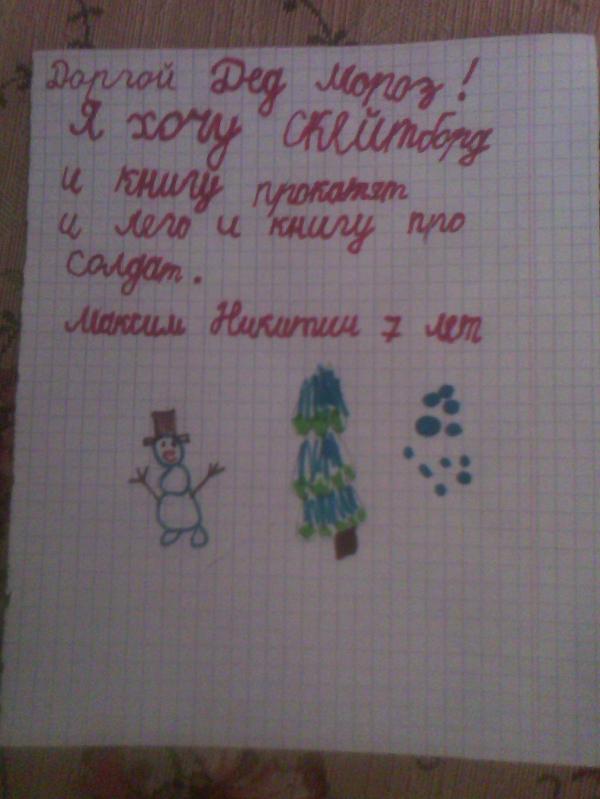 Доргой Дед мороз!
Я хочу скейтборд
и книгу прокатят
и лего и книгу про
солдат.
Максим Никитин 7 лет